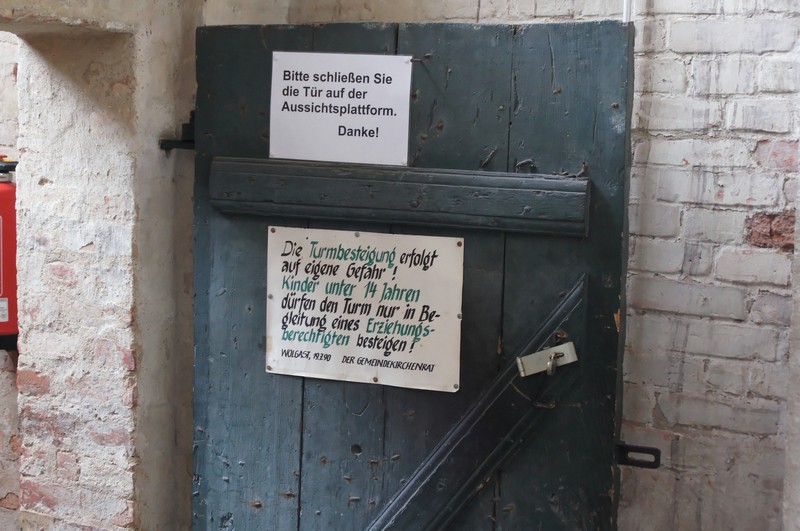 Bitte schließen Sie
die Tür auf der
Aussichtsplattform.
Danke!
Die Turmbesteigung erfolgt
auf eigene Gefahr!
Kinder unter 14 Jahren
dürfen den Turm nur in Be-
gleitung eines Erziehungs-
berechtigten besteigen!
WOLGAST, 19.3.90 DER GEMEINDEKIRCHENRAT